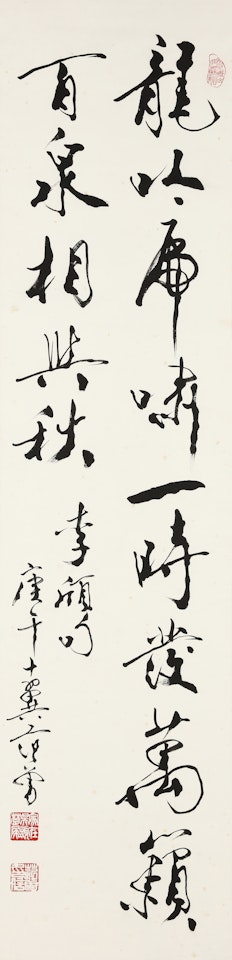 龍吟虎嘯一時發萬籟
百泉相與秋
李頎句
庚午十翼范曾